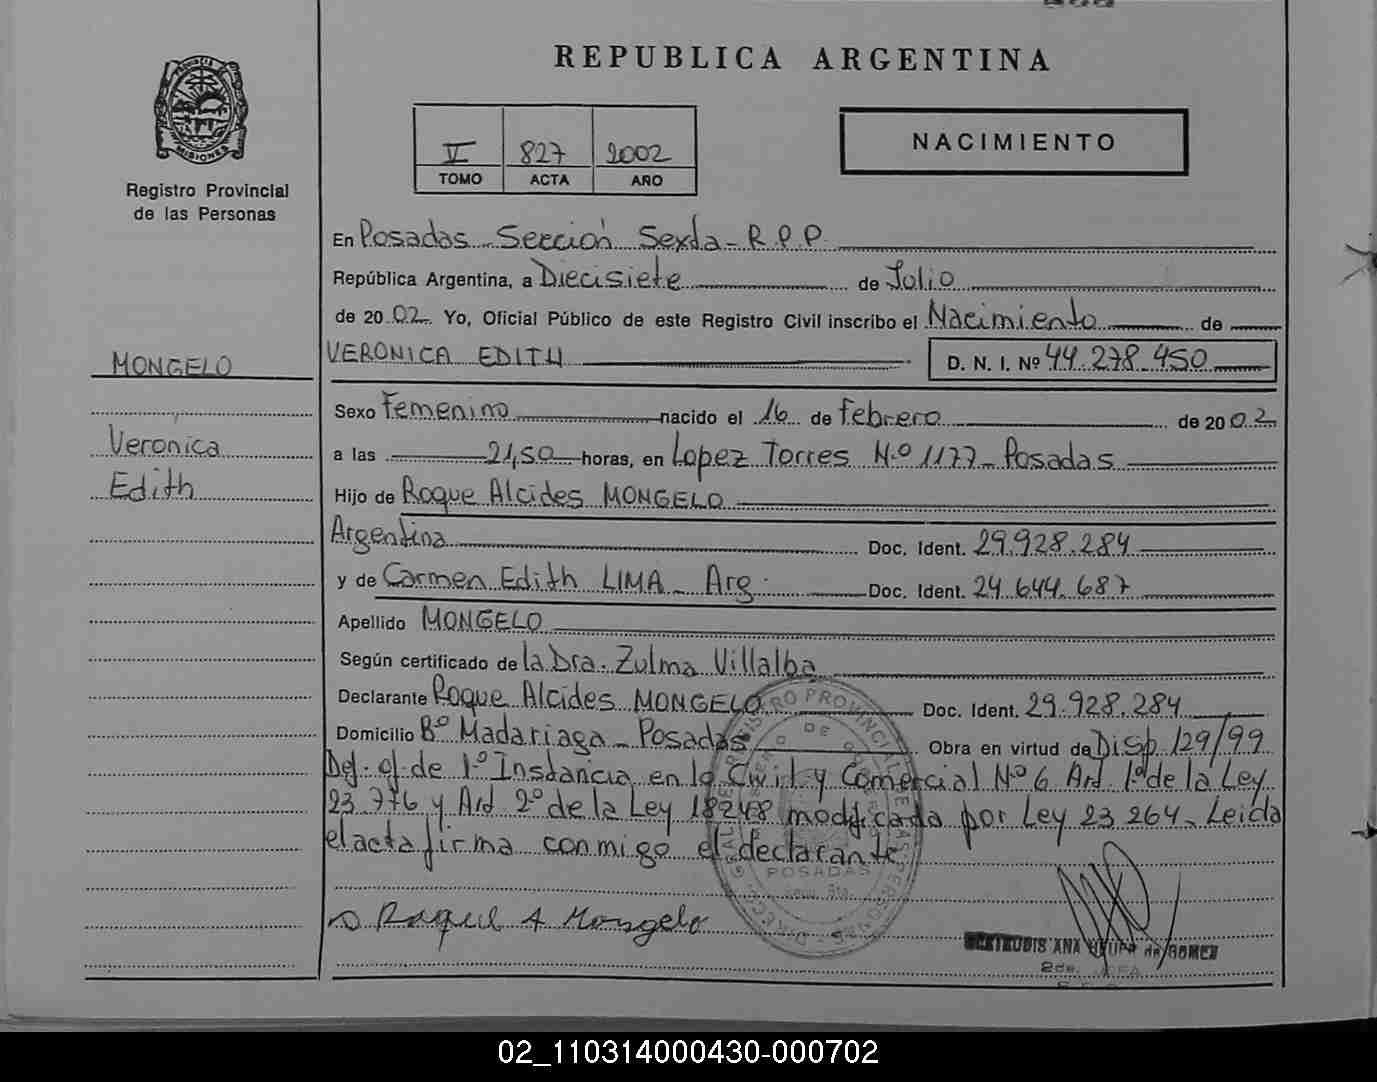 REPUBLICA ARGENTINA
MISIONES
Registro Provincial
de las Personas
V 827 2002
TOMO ACTA AÑO
NACIMIENTO
En Posadas Sección Sexta - R.P.P.
República Argentina, a Diecisiete de Julio
de 2002 Yo, Oficial Público de este Registro Civil inscribo el Nacimiento de
VERONICA EDITH D. N. I. Nº 44.278.450
MONGELO
Veronica
Edith
Sexo Femenino nacido el 16 de Febrero de 2002
a las 21,50 horas, en Lopez Torres N.º 1177 - Posadas
Hijo de Roque Alcides MONGELO
Argentina Doc. Ident. 29.928.284
y de Carmen Edith LIMA - Arg. Doc. Ident. 24.644.687
Apellido MONGELO
Según certificado de la Dra. Zulma Villalba
Declarante Roque Alcides MONGELO Doc. Ident. 29.928.284
Domicilio Bº Madariaga - Posadas Obra en virtud de Disp 129/99
Def. of. de 1º Instancia en lo Civil y Comercial Nº 6 Art 1º de la Ley
23.776 y Art 2º de la Ley 18248 modificada por Ley 23.264 - Leida
el acta firma conmigo el declarante
POSADAS
Roque A Mongelo
ANA de GOMEZ
2da. JEFA
02_110314000430-000702